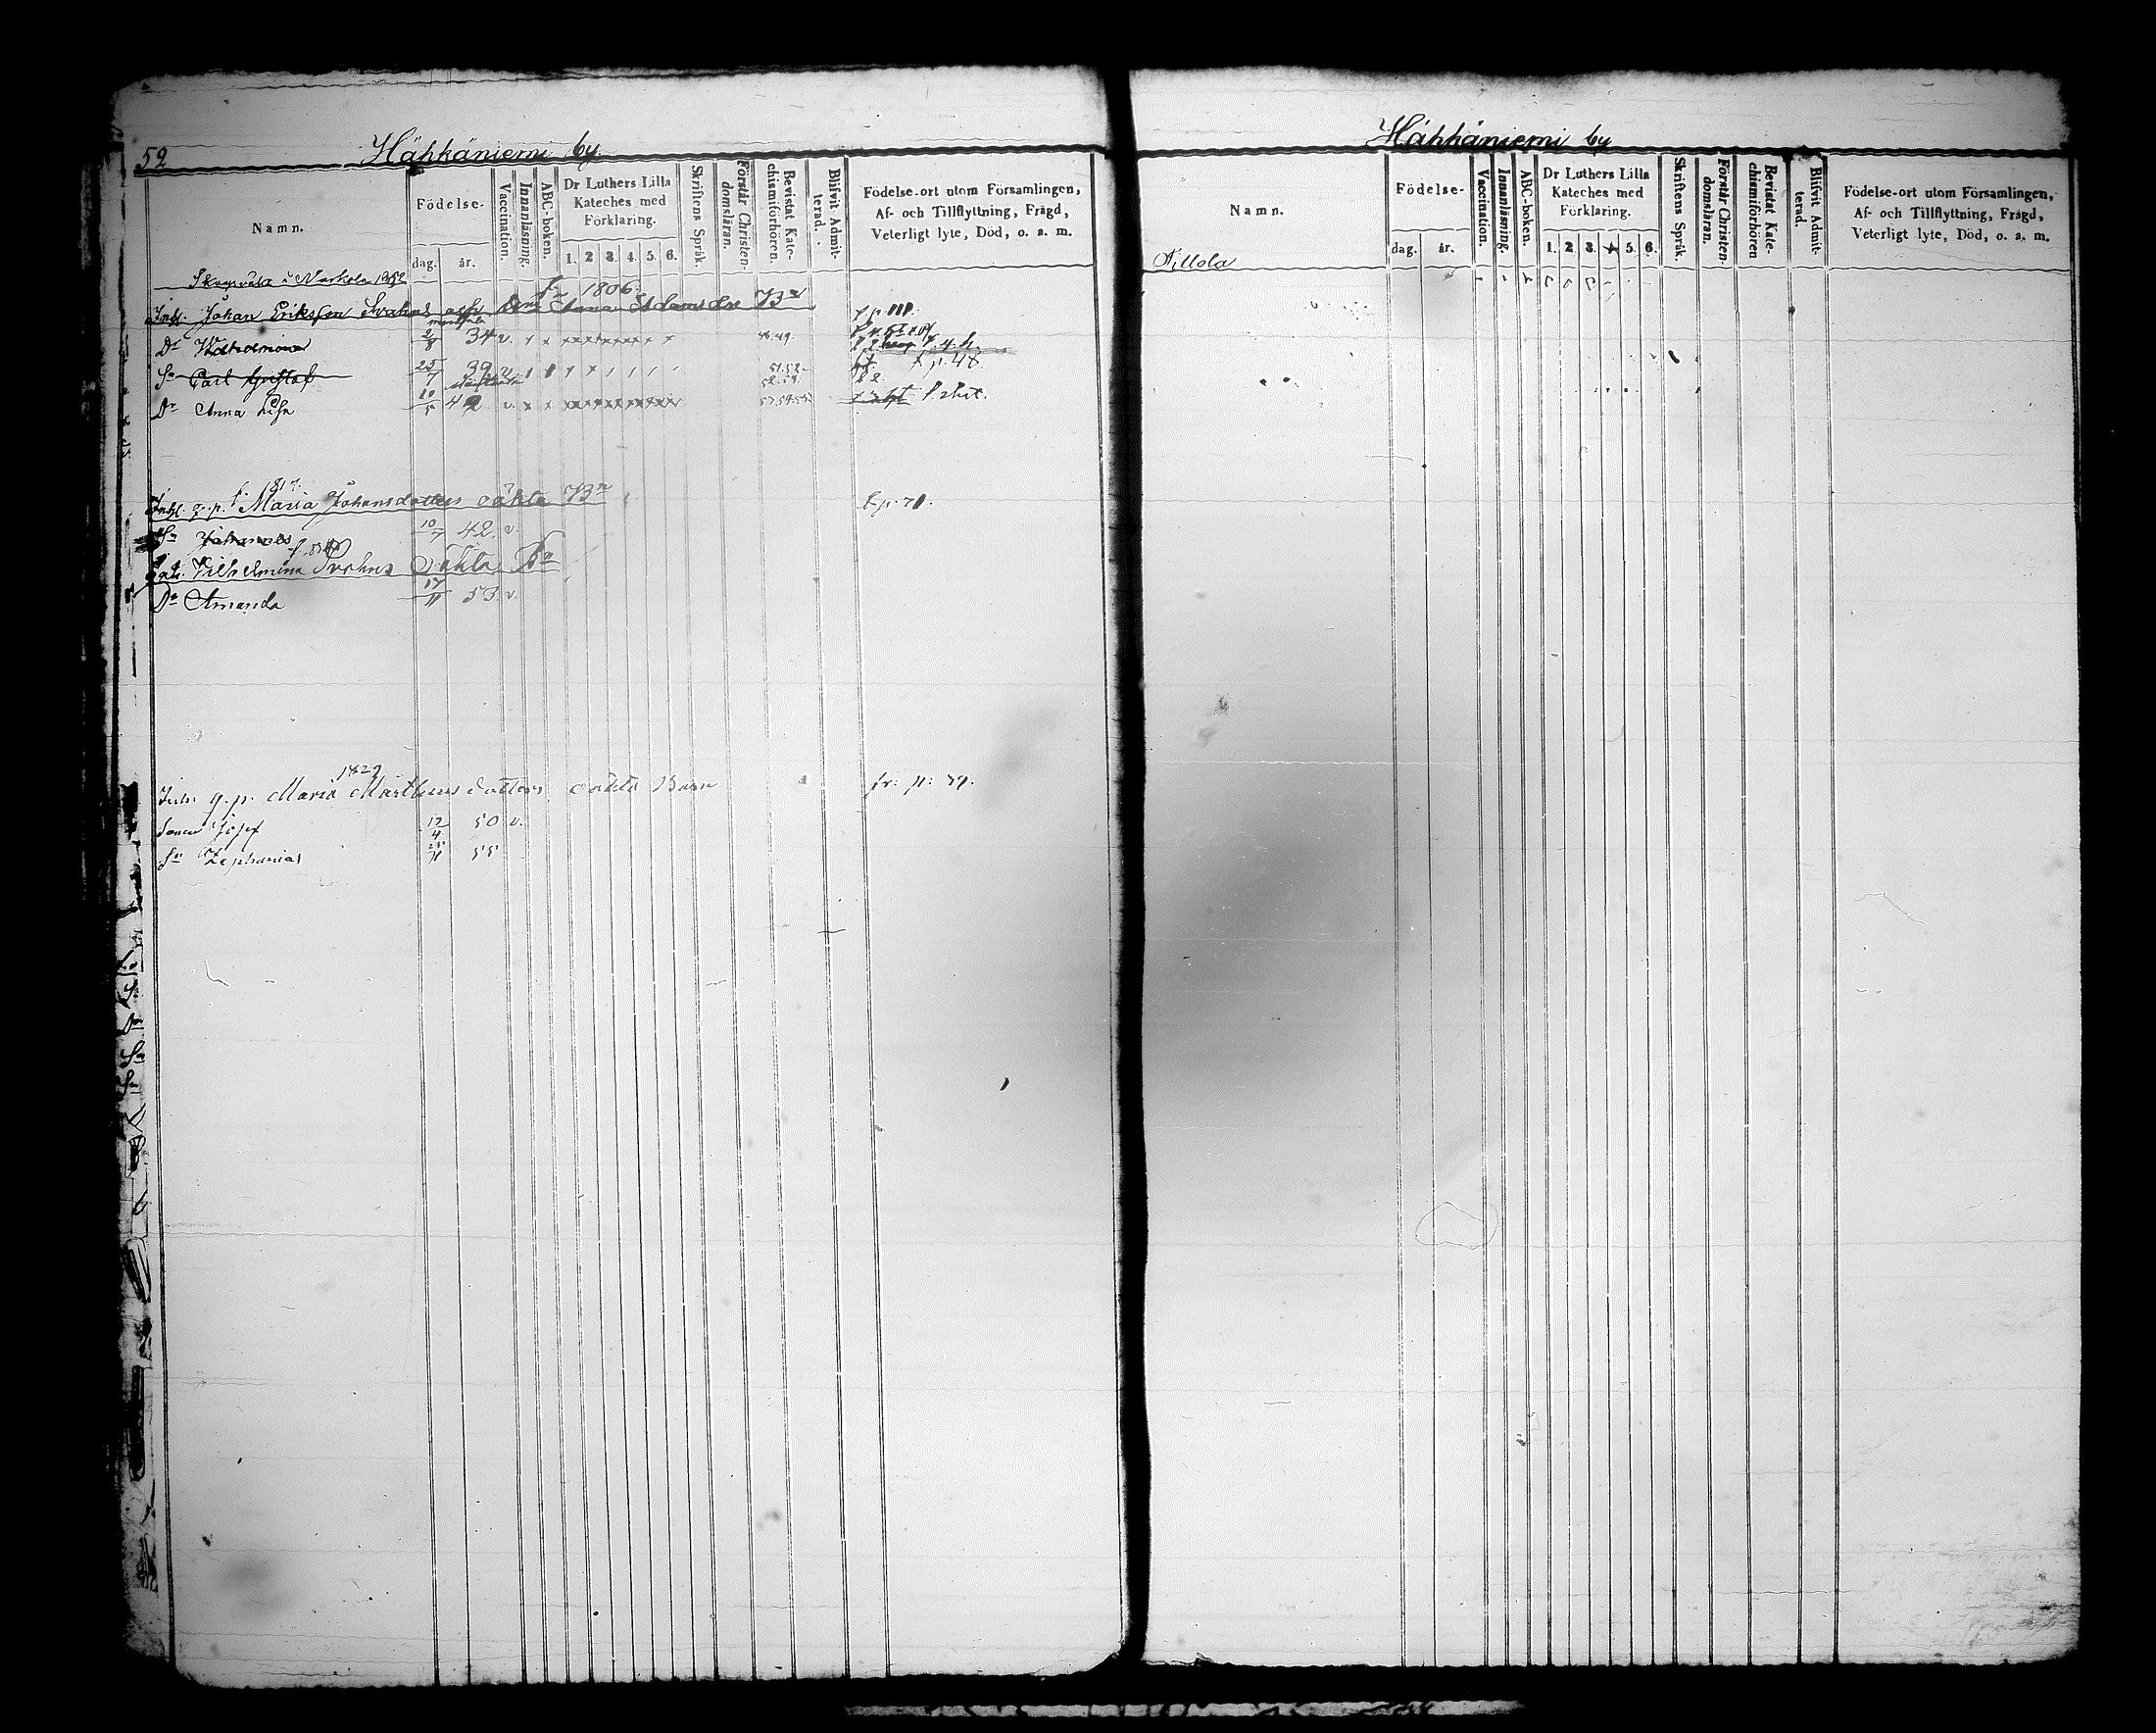 52
Hähkäniemi by
Namn.
Födelse-
dag.
år.
Vaccination.
Innanläsning.
ABC-boken.
Dr Luthers Lilla Kateches med Förklaring.
1. 2 3. 4. 5. 6.
Skriftens Språk.
Förstår Christendomsläran.
Bevistat Katechismiförhören.
Blifvit Admitterad.
Födelse-ort utom Församlingen,
Af- och Tillflyttning, Frägd,
Veterligt lyte, Död, o. a. m.
f. 1806.
Inh. Johan Eriksson Anna Bn
Dr 2/8 34 v. 48.49.
Sn Carl Gustaf 25/7 39 v. 51.52 f p. 48.
Dr Anna Lisa 10/5 42 v. 53.54.55.
f. 1817.
Inh. q.p. Maria Johansdotters oäkta Bn f p. 71.
Sn Johannes 10/7 42. v.
Vilhelmina oäkta Bn
Dr Amanda 17/11 53. v.
1829
Inh. q.p. Maria Matthiusdotters oäkta Barn fr: p: 39.
Sonen Josef 12/4 50 v.
Sn Zephanias 25/11 55
Hähkäniemi by
Namn.
Födelse-
dag.
år.
Vaccination.
Innanläsning.
ABC-boken.
Dr Luthers Lilla Kateches med Förklaring.
1. 2 3. 4 5. 6.
Skriftens Språk.
Förstår Christendomsläran.
Bevistat Katechismiförhören
Blifvit Admitterad.
Födelse-ort utom Församlingen,
Af- och Tillflyttning, Frägd,
Veterligt lyte, Död, o. a. m.
Tillola